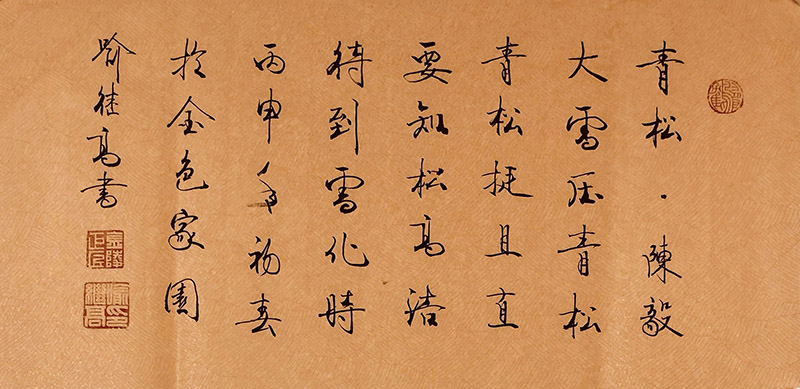 青松·陳毅
大雪压青松
青松挺且直
要知松高洁
待到雪化時
丙申年初春
於金色家園
喻继高書